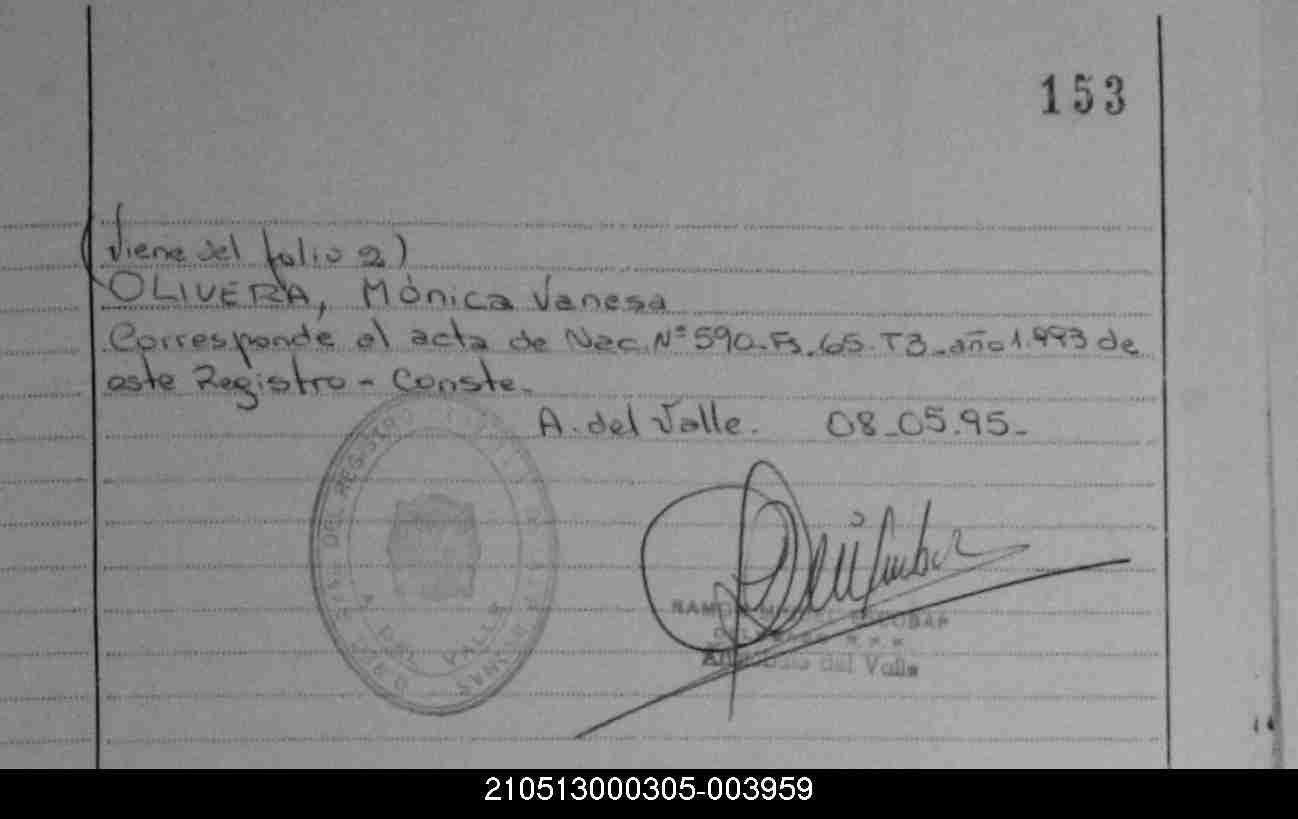 153
(Viene del folio 2)
OLIVERA, Mónica Vanesa
Corresponde al acta de Nac. Nº 590. Fs. 65. T3. año 1.993 de
este Registro - Conste.
A. del Valle. 08-05-95-
DEL REGISTRO
A. DEL VALLE
ESCOBAR
del Valle
210513000305-003959